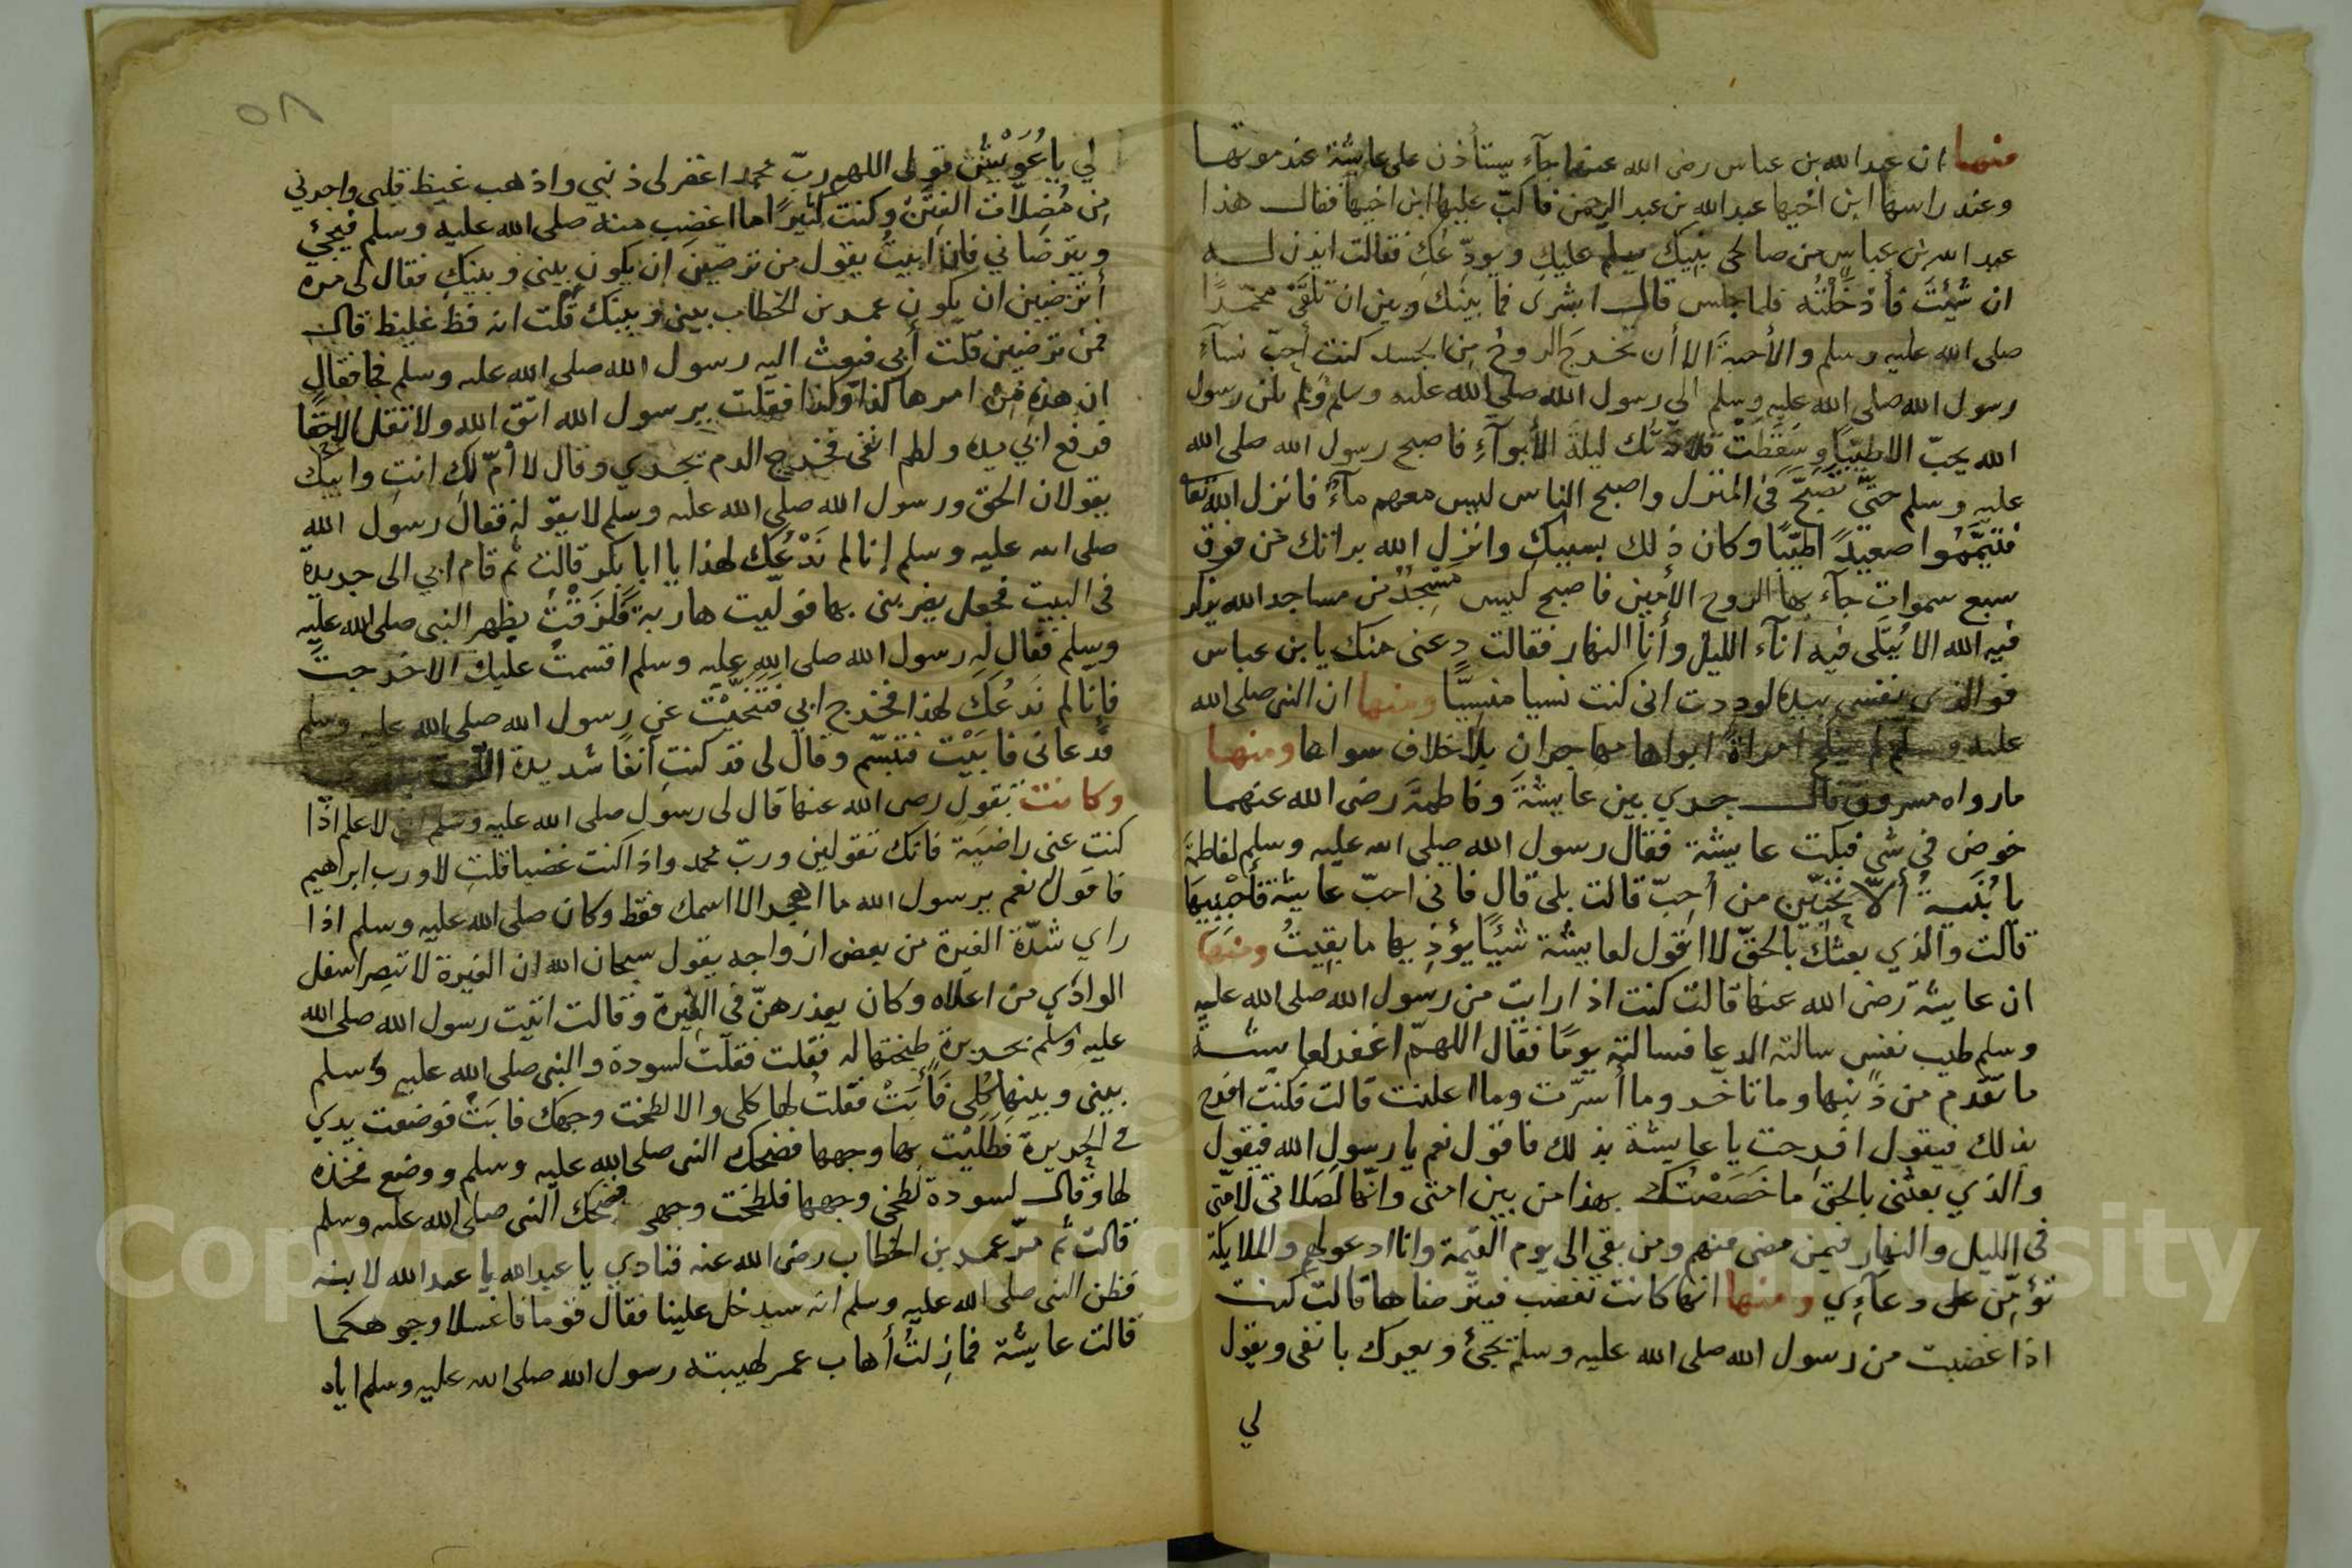 منها ان عبد الله بن عباس رضى الله عنهما جآء يستأذن على عايشة عند موتها
وعند راسها ابن اخيها عبد الله بن عبد الرحمن فاكبّ عليها ابن اخيها فقال هذا
عبد الله بن عباس من صالحى بنيك يسلم عليك ويودّعك فقالت ايذن له
ان شئتَ فأدخَلْتُه فلما جلس قال ابشرى فما بينك وبين ان تلقَىْ محمدًا
صلى الله عليه وسلم والأحبة الا أن تخرجَ الروحُ من الجسد كنت أحبّ نسآءِ
رسول الله صلى الله عليه وسلم الي رسول الله صلى الله عليه وسلم ولم يكن رسول
الله يحبّ الا طيّبًا وسَقَطَتْ قلادتك ليلة الأبوآءِ فاصبح رسول الله صلى الله
عليه وسلم حتّي تصبّح في المنزل واصبح الناس ليس معهم مآءٌ فانزل الله تعالى
فتيَمَّمُوا صعيدًا طيّبًا وكان ذلك بسببك وانزل الله براتك من فوق
سبع سموات جآء بها الروح الأمين فاصبح ليس مسجدٌ من مساجد الله يذكر
فيه الله الا يُتلَى فيه انآء الليل وأنآ النهار فقالت دعنى منك يا بن عباس
فوالذى نفسى بيده لوددت انى كنت نسيا منسيًّا ومنها ان النبى صلى الله
عليه وسلم لم ينكح امراةً ابواها مهاجران بلا خلاف سواها ومنها
ما رواه مسروق قال جري بين عايشةَ وفاطمةَ رضى الله عنهما
خوض في شي فبكت عايشة فقال رسول الله صلى الله عليه وسلم لفاطمةَ
يا بُنَيةُ ألاّ تحبّين من أُحِبّ قالت بلى قال فانى احبّ عايشة فأحِبّيها
قالت والذي بعثك بالحقّ لا اقول لعايشة شيئًا يؤذيها ما بقيتُ ومنها
ان عايشة رضى الله عنها قالت كنت اذا رايت من رسول الله صلى الله عليه
وسلم طيب نفس سالته الدعا فسالته يومًا فقال اللهمّ اغفر لعايشة
ما تقدم من ذنبها وما تاخر وما أسرّت وما اعلنت قالت فكنت افرح
بذلك فيقول افرحت يا عايشة بذلك فاقول نعم يا رسول الله فيقول
والذي بعثنى بالحق ما خصَصْتُك بهذا من بين امتى وانّها لصَلاتى لأمتى
في الليل والنهار فيمن مضى منهم ومن بقي الى يوم القيمة وانا ادعو لهم والملايكة
تؤمِّن على دعآءِي ومنها انها كانت تغضب فيترضاها قالت كنت
اذا غضبت من رسول الله صلى الله عليه وسلم يجئ ويعرك بانفى ويقول
لي
٥٨
لي يا عُوَيْش قولى اللهم ربّ محمد اغفر لى ذنبي واذهب غيظ قلبى واجرنى
من مُضِلاّت الفِتَن وكنت كثيرًا ما اغضب منه صلى الله عليه وسلم فيجئ
ويترضاني فان ابيتُ يقول من ترضين ان يكون بيني وبينك فقال لى مرة
أترضين ان يكون عمر بن الخطاب بيني وبينك قلت انه فظ غليظ قال
فمن ترضين قلت أبي فبعث اليه رسول الله صلى الله عليه وسلم فجا فقال
ان هذه من امرها كذا وكذا فقلت يرسول الله اتق الله ولا تقل الا حقا
فرفع ابي يده ولطم انفى فخرج الدم يجري وقال لا أمّ لكِ انتِ وابيك
يقولان الحق ورسول الله صلى الله عليه وسلم لا يقوله فقال رسول الله
صلى الله عليه وسلم إنا لم نَدْعُك لهذا يا ابا بكر قالت ثم قام ابي الى جريدة
فى البيت فجعل يضربنى بها فوليت هاربة فلزقْتُ بظهر النبى صلى الله عليه
وسلم فقال له رسول الله صلى الله عليه وسلم اقسمت عليك الا خرجتَ
فإنا لم ندعُك لهذا فخرج ابي فتنحّيْتُ عن رسول الله صلى الله عليه وسلم
فدعانى فابَيْت فتبسّم وقال لى قد كنتِ آنفًا شديدة
وكانت تقول رضى الله عنها قال لى رسول صلى الله عليه وسلم انى لاعلم اذا
كنت عنى راضيَة فانك تقولين وربّ محمد واذا كنت غضبا قلتِ لا ورب ابراهيم
فاقول نعم يرسول الله ما اهجر الا اسمك فقط وكان صلى الله عليه وسلم اذا
راي شدّة الغيرة من بعض ازواجه يقول سبحان الله ان الغيرة لا تبصر اسفل
الوادي من اعلاه وكان يعذرهنّ في الغيرة وقالت اتيت رسول الله صلى الله
عليه وسلم بحريرة طبختها له فقلت فقلت لسودة والنبى صلى الله عليه وسلم
بينى وبينها كُلِى فأبَتْ فقلتُ لها كلى والا لطخت وجهك فابَتْ فوضعت يدي
في الحريرة فطَلَيْت بها وجهها فضحك النبى صلى الله عليه وسلم ووضع فخذه
لها وقال لسودة لطخى وجهها فلطخت وجهى فضحك النبى صلى الله عليه وسلم
قالت ثم مرّ عمر بن الخطاب رضى الله عنه فنادي يا عبد الله يا عبد الله لابنه
فظن النبى صلى الله عليه وسلم انه سيدخل علينا فقال قوما فاغسلا وجوهكما
قالت عايشة فما زلتُ أهاب عمر لهيبته رسول الله صلى الله عليه وسلم اياه
Copyright © King Saud University